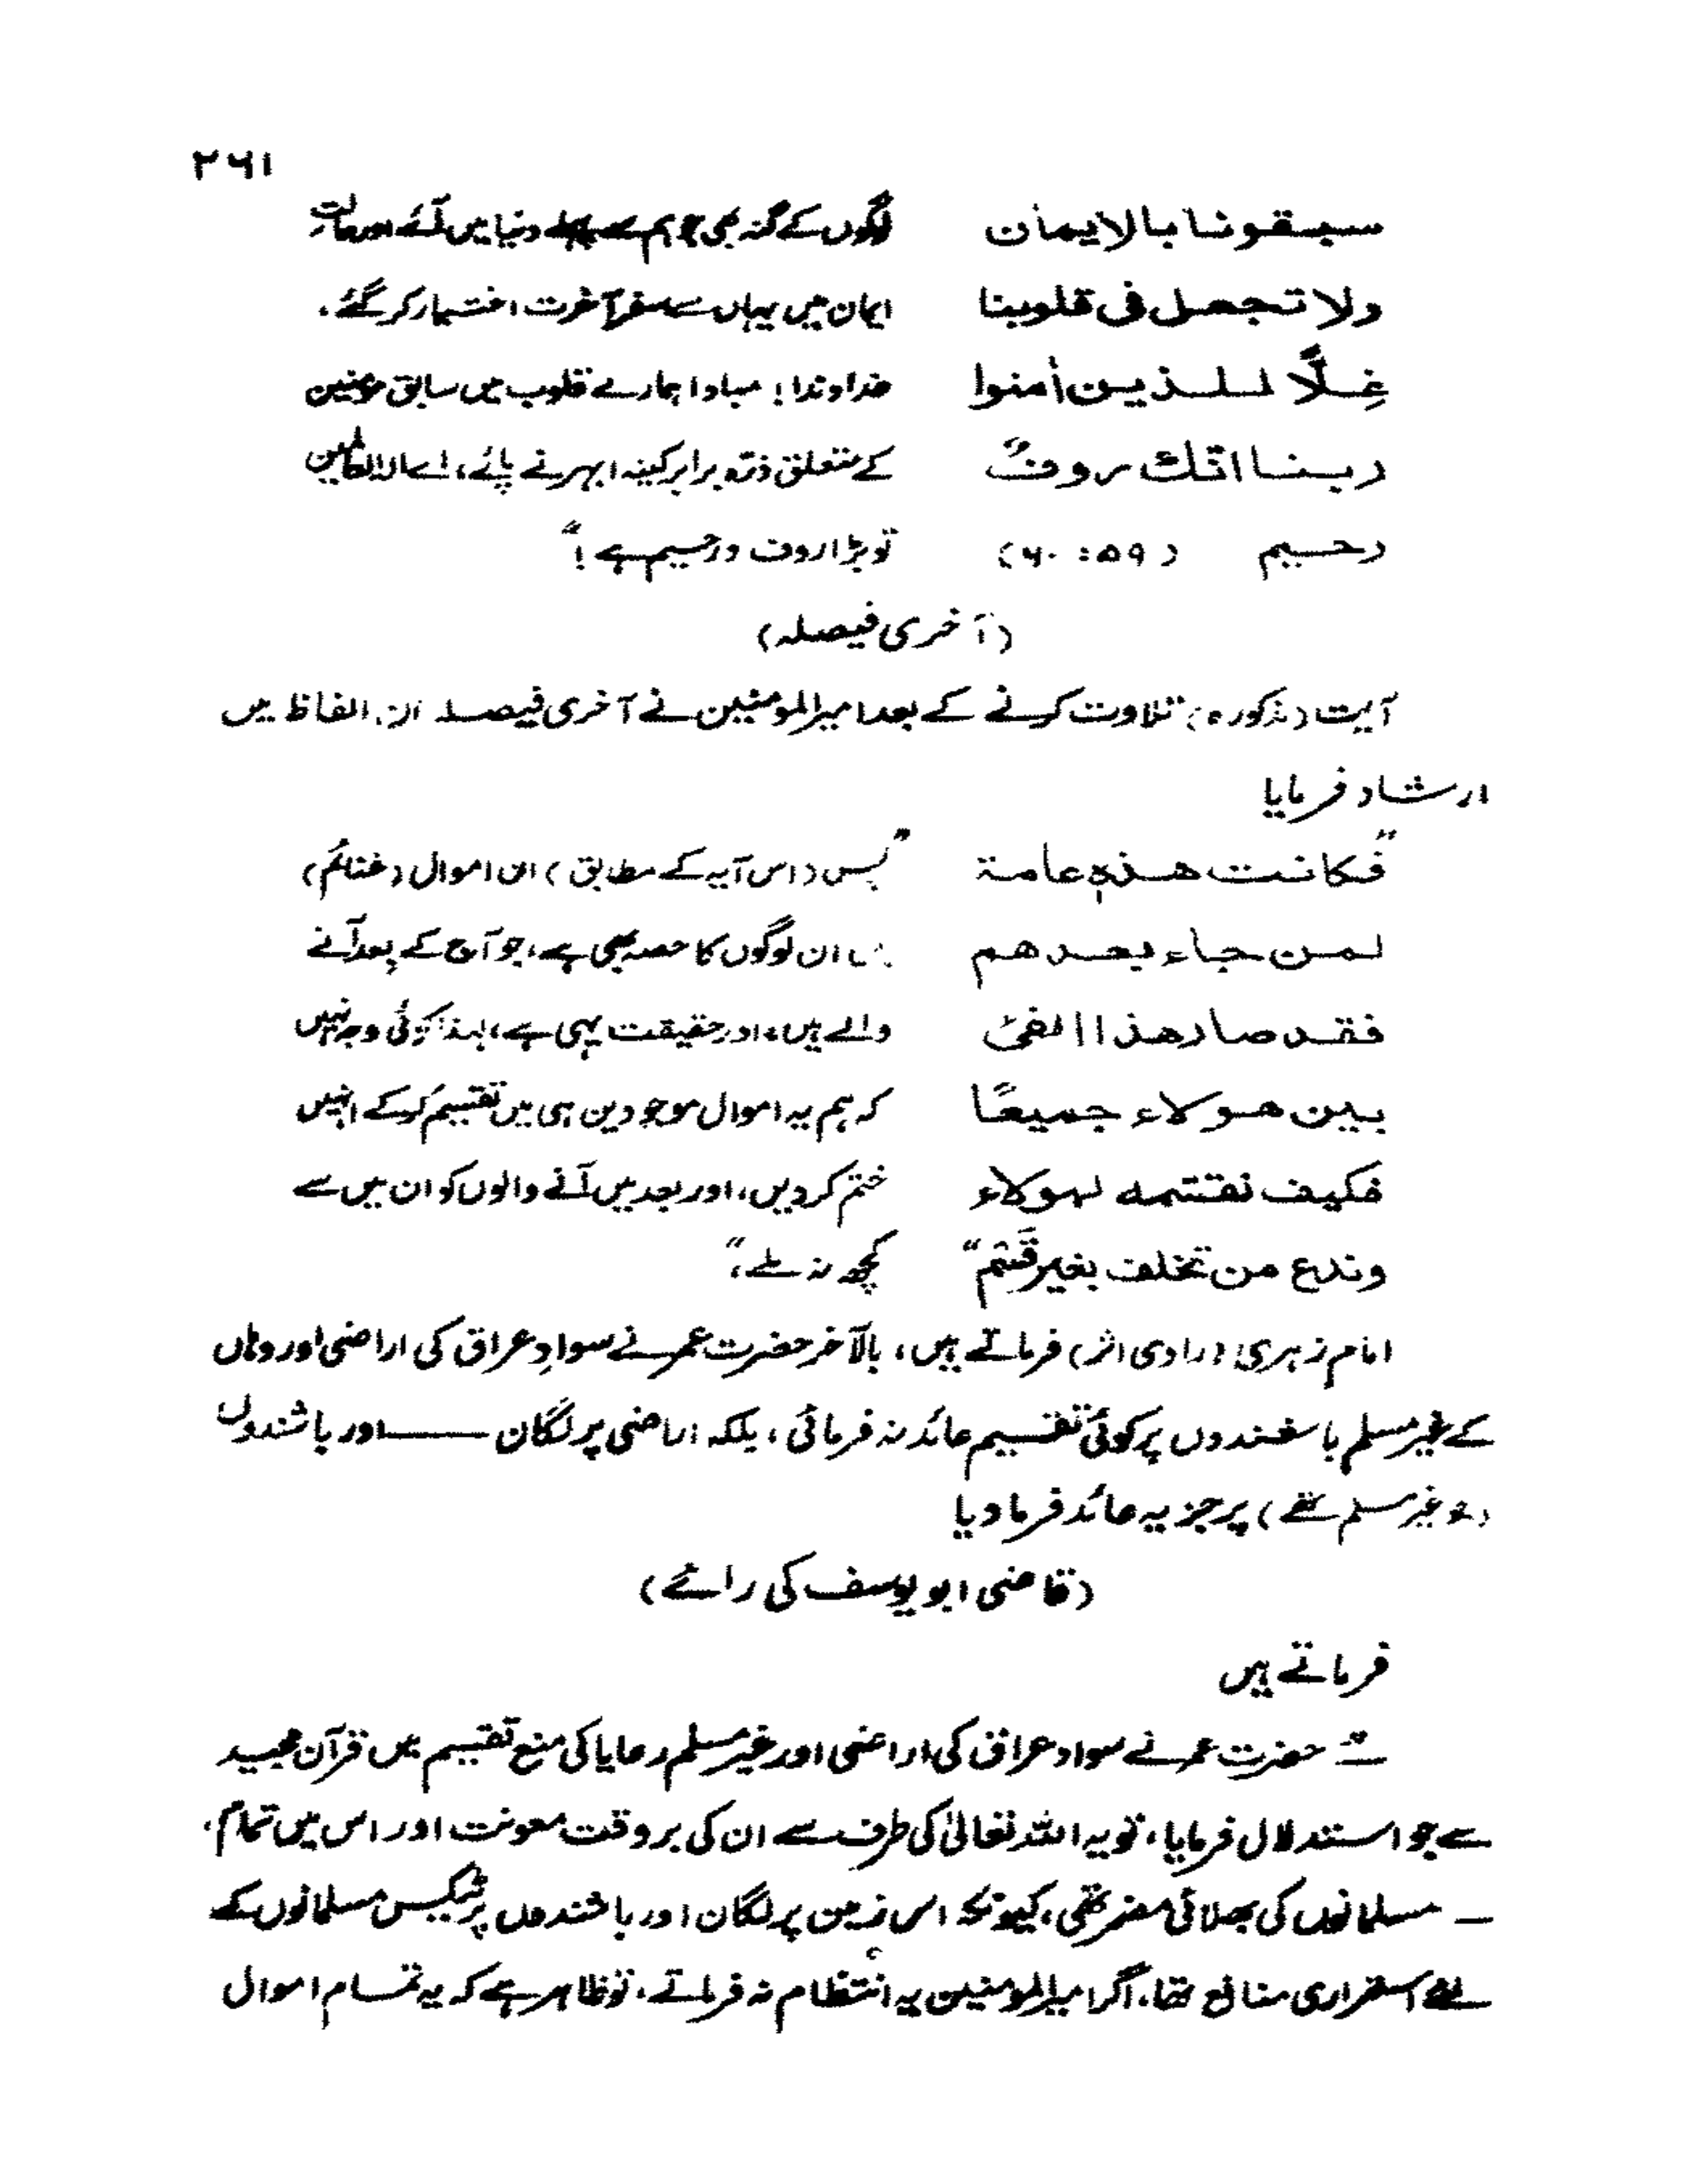 ۲۶۱
سبقونا بالایمان لوگوں کے گنہ بھی جو ہم سے پہلے دنیا میں آئے اور حالتِ
ولا تجعل فی قلوبنا ایمان میں یہاں سے سفر آخرت اختیار کر گئے،
غِلًّا للذین اٰمنوا خداوندا! مبادا ہمارے قلوب میں سابق مومنین
ربنا انّك روفٌ کے متعلق ذرّہ برابر کینہ ابھرنے پائے، اے الہ العالمین
رحیم (۵۹: ۶۰) تو بڑا روف و رحیم ہے!"
(آخری فیصلہ)
آیت (مذکورہ) تلاوت کرنے کے بعد امیر المومنین نے آخری فیصلہ ان الفاظ میں
ارشاد فرمایا
"فکانت ھذہٖ عامة "پس (اس آیہ کے مطابق) ان اموال (غنائم)
لمن جاء بعدھم میں ان لوگوں کا حصہ بھی ہے، جو آج کے بعد آنے
فقد صار ھذا الفیٔ والے ہیں، اور حقیقت یہی ہے، لہذا کوئی وجہ نہیں
بین ھولاء جمیعًا کہ ہم یہ اموال موجودین ہی میں تقسیم کرکے انہیں
فکیف نقتتمه لہولاء ختم کر دیں، اور بعد میں آنے والوں کو ان میں سے
وندع من تخلف بغیر قَسْم" کچھ نہ ملے،"
امام زہری (راوی اثر) فرماتے ہیں، بالآخر حضرت عمر نے سوادِ عراق کی اراضی اور وہاں
کے غیر مسلم باشندوں پر کوئی تقسیم عائد نہ فرمائی، بلکہ اراضی پر لگان ــــــ اور باشندوں
(جو غیر مسلم تھے) پر جزیہ عائد فرما دیا
(قاضی ابو یوسف کی رائے)
فرماتے ہیں
حضرت عمر نے سواد عراق کی اراضی اور غیر مسلم رعایا کی منع تقسیم میں قرآن مجید
سے جو استدلال فرمایا، تو یہ اللہ تعالیٰ کی طرف سے ان کی بروقت معونت اور اس میں تمام،
ــ مسلمانوں کی بھلائی مضمر تھی، کیونکہ اس زمین پر لگان اور باشندوں پر ٹیکس مسلمانوں کے
لئے استمراری منافع تھا، اگر امیر المومنین یہ انتظام نہ فرماتے، تو ظاہر ہے کہ یہ تمام اموال